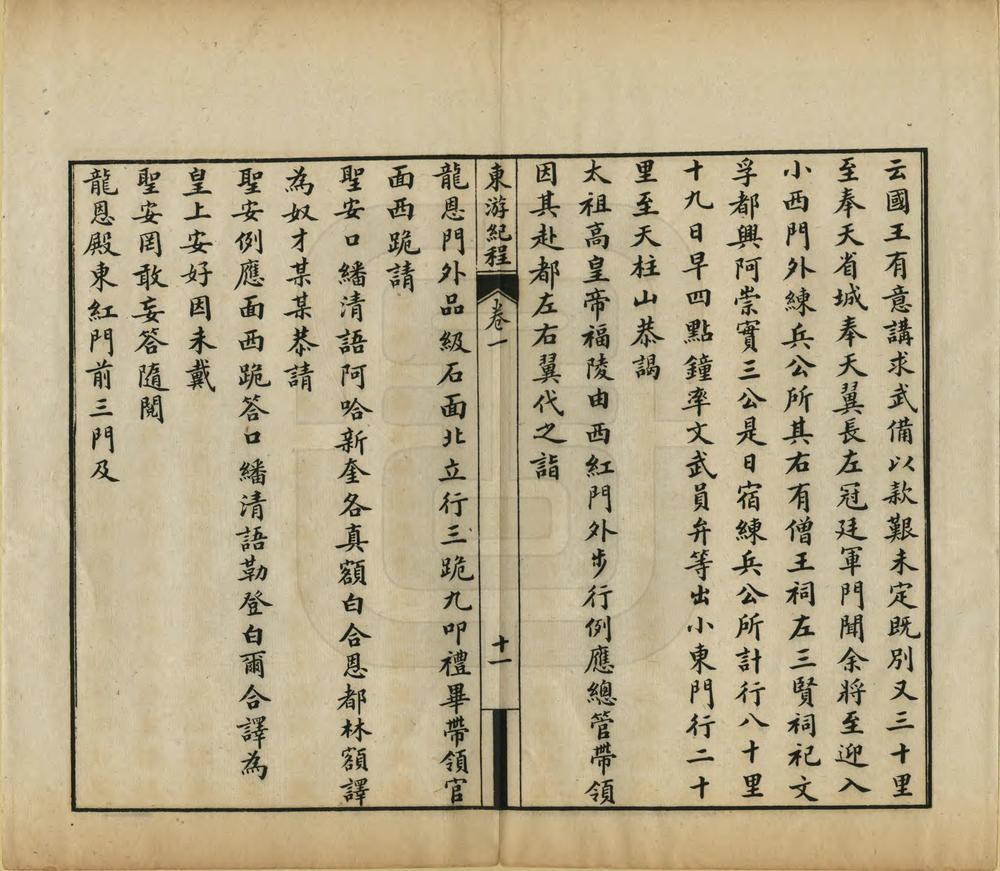 云國王有意講求武備以款艱未定既別又三十里
至奉天省城奉天翼長左冠廷軍門聞余將至迎入
小西門外練兵公所其右有僧王祠左三賢祠祀文
孚都興阿崇實三公是日宿練兵公所計行八十里
十九日早四點鐘率文武員弁等出小東門行二十
里至天柱山恭謁
太祖高皇帝福陵由西紅門外步行例應總管帶領
因其赴都左右翼代之詣
東游紀程 卷一 十一
龍恩門外品級石面北立行三跪九叩禮畢帶領官
面西跪請
聖安口繙清語阿哈新奎各真額白合恩都林額譯
為奴才某某恭請
聖安例應面西跪答口繙清語勒登白爾合譯為
皇上安好因未戴
聖安罔敢妄答隨閱
龍恩殿東紅門前三門及